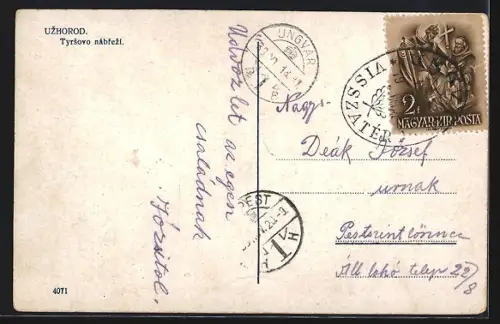 UŽHOROD.
Tyršovo nábřeží.
Üdvözlet az egész
családnak
Józsitól.
4071
UNGVÁR
2
MAGYAR KIR POSTA
Nagys.
Deák József
urnak
Pestszentlőrincz
Áll. lakó telep 22/8